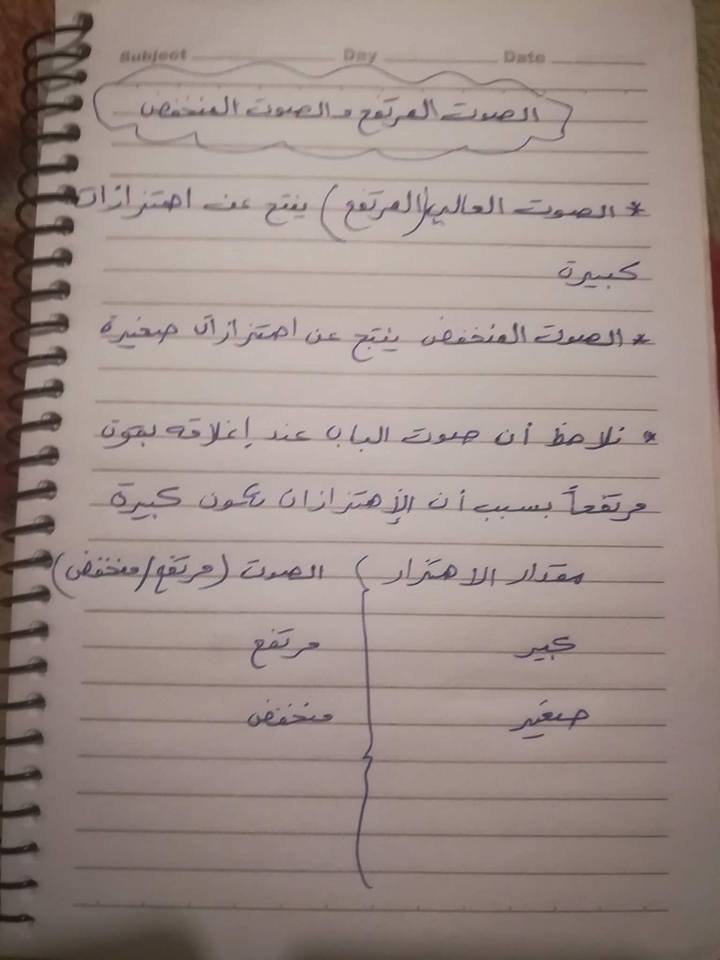 Subject Day Date
الصوت المرتفع و الصوت المنخفض
* الصوت العالي (المرتفع) ينتج عن اهتزازات
كبيرة
* الصوت المنخفض ينتج عن اهتزازات صغيرة
* نلاحظ أن صوت الباب عند إغلاقه بقوة
مرتفعاً بسبب أن الإهتزازات تكون كبيرة
مقدار الاهتزاز الصوت (مرتفع/منخفض)
كبير مرتفع
صغير منخفض